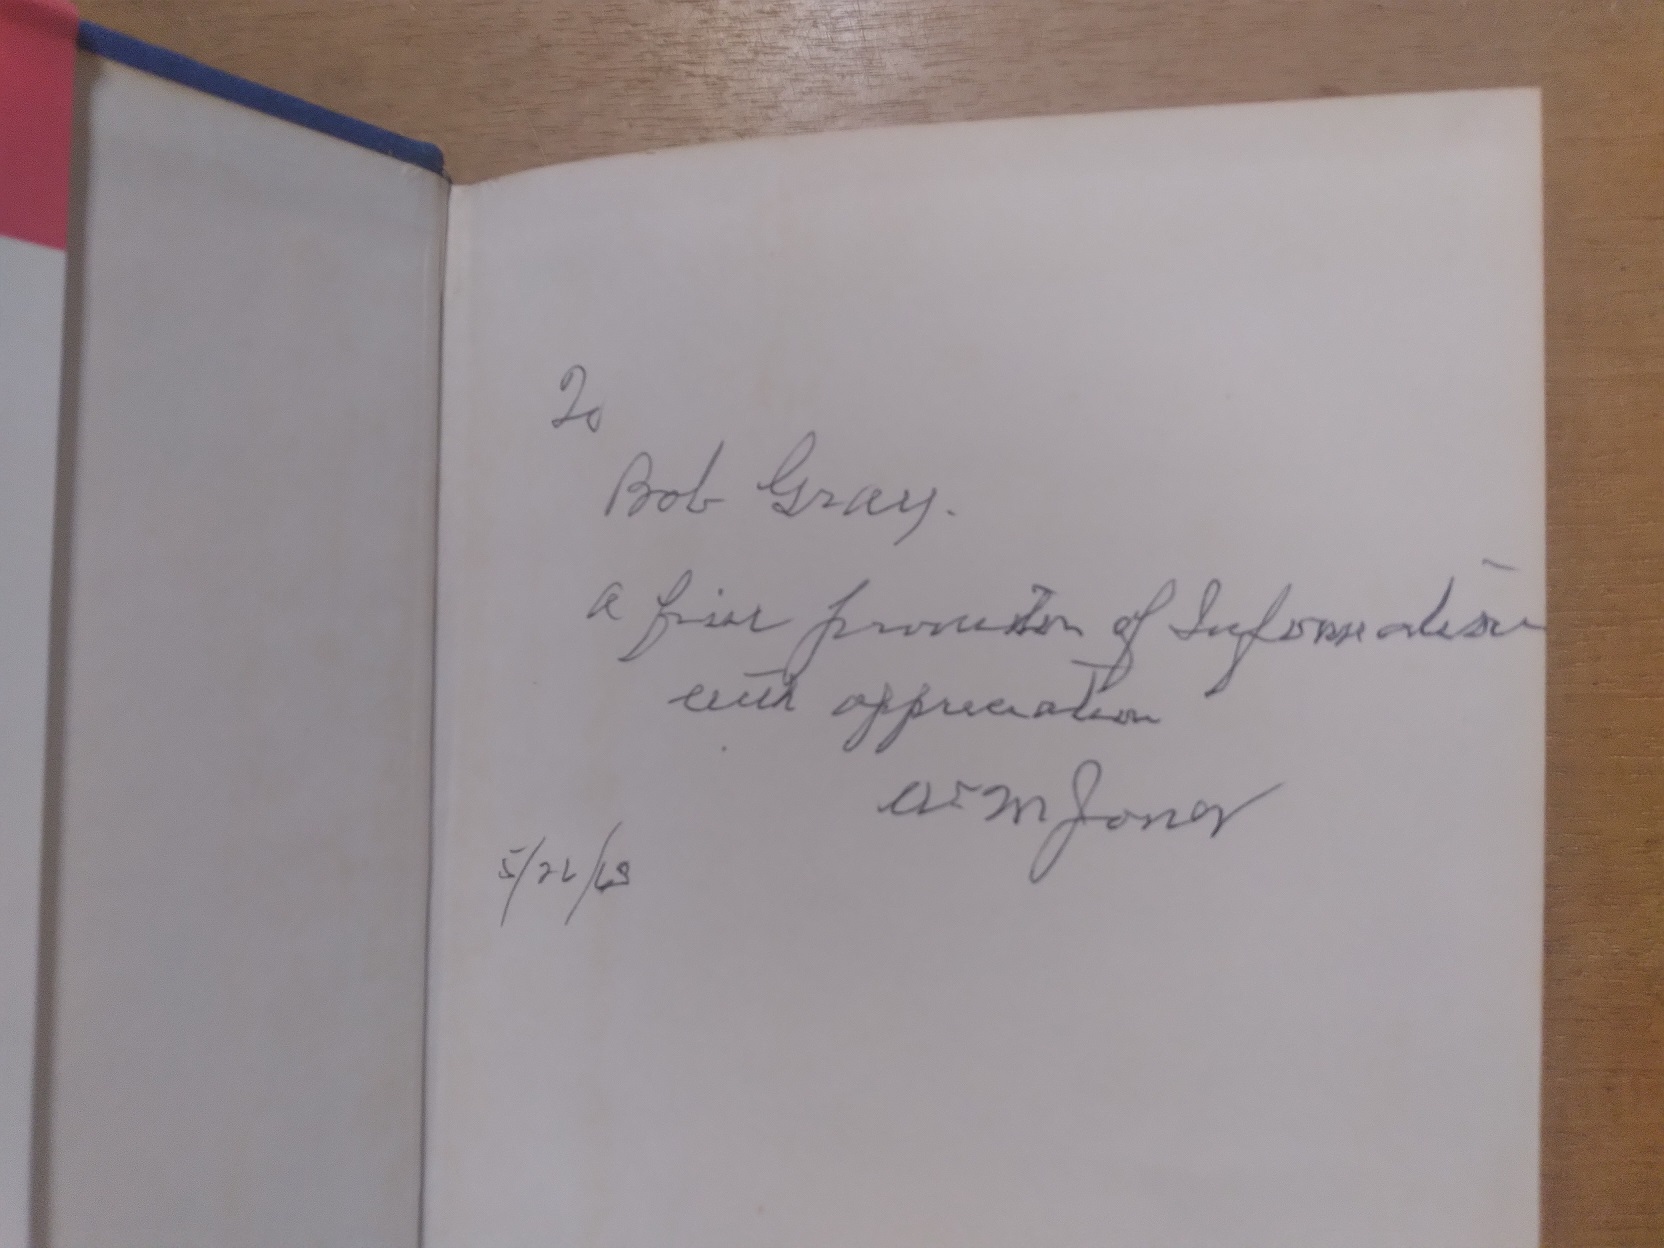 To
Bob Gray.
a fine provider of Information
with appreciation
Wm Jones
5/22/68